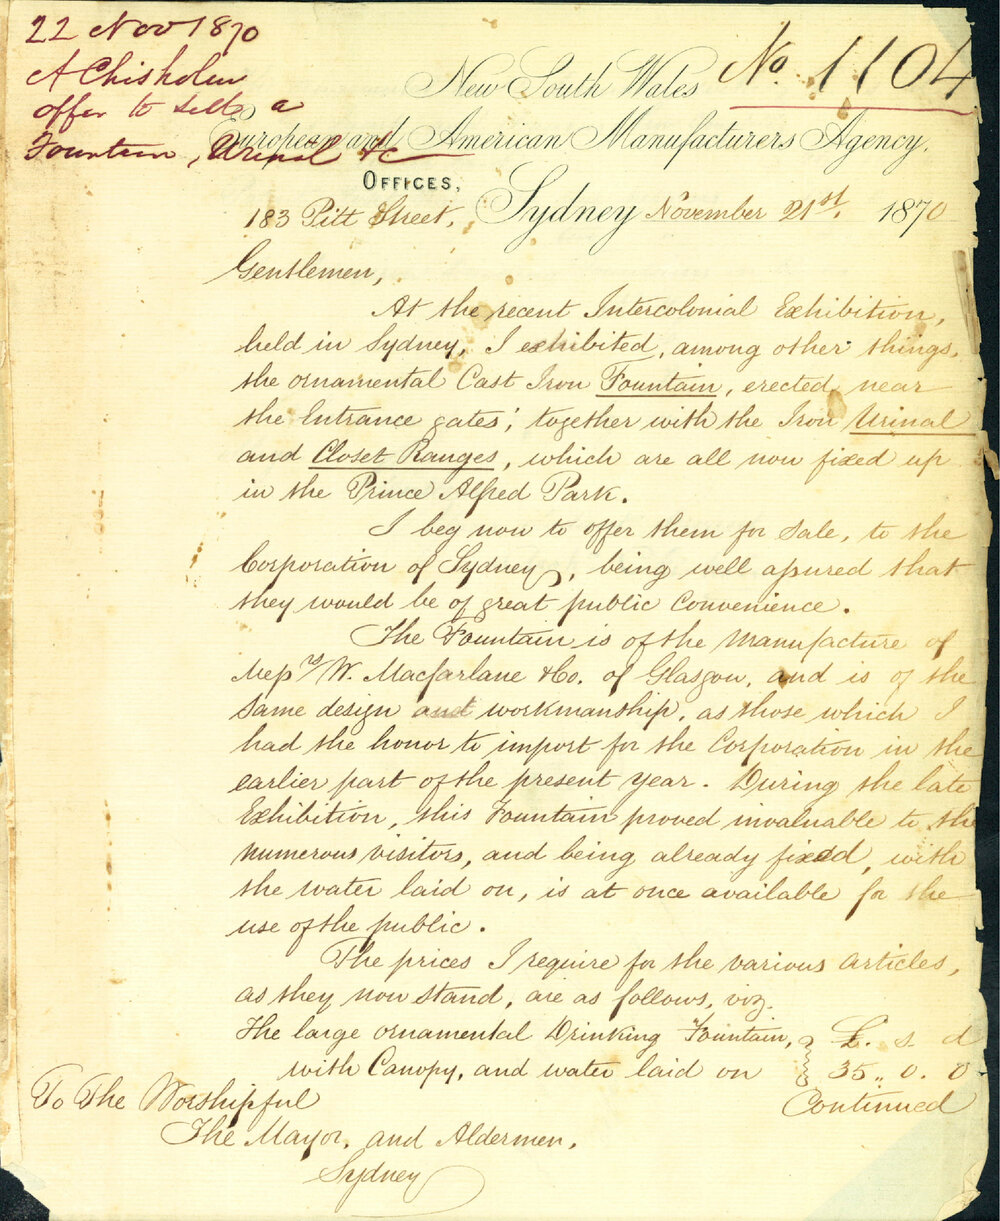 22 Nov 1870
A Chisholm
offer to sell a
Fountain, Urinal &c
No. 1104
New South Wales
European and American Manufacturers Agency.
OFFICES,
183 Pitt Street, Sydney November 21st. 1870
Gentlemen,
At the recent Intercolonial Exhibition,
held in Sydney, I exhibited, among other things,
the ornamental Cast Iron Fountain, erected near
the Entrance gates; together with the Iron Urinal
and Closet Ranges, which are all now fixed up
in the Prince Alfred Park.
I beg now to offer them for sale, to the
Corporation of Sydney, being well assured that
they would be of great public convenience.
The Fountain is of the manufacture of
Messrs W. Macfarlane & Co. of Glasgow, and is of the
same design and workmanship, as those which I
had the honor to import for the Corporation in the
earlier part of the present year. During the late
Exhibition, this Fountain proved invaluable to the
numerous visitors, and being already fixed, with
the water laid on, is at once available for the
use of the public.
The prices I require for the various articles,
as they now stand, are as follows, viz.
The large ornamental Drinking Fountain, £. s. d
with Canopy, and water laid on 35 ,, 0. 0
Continued
To The Worshipful
The Mayor, and Aldermen,
Sydney